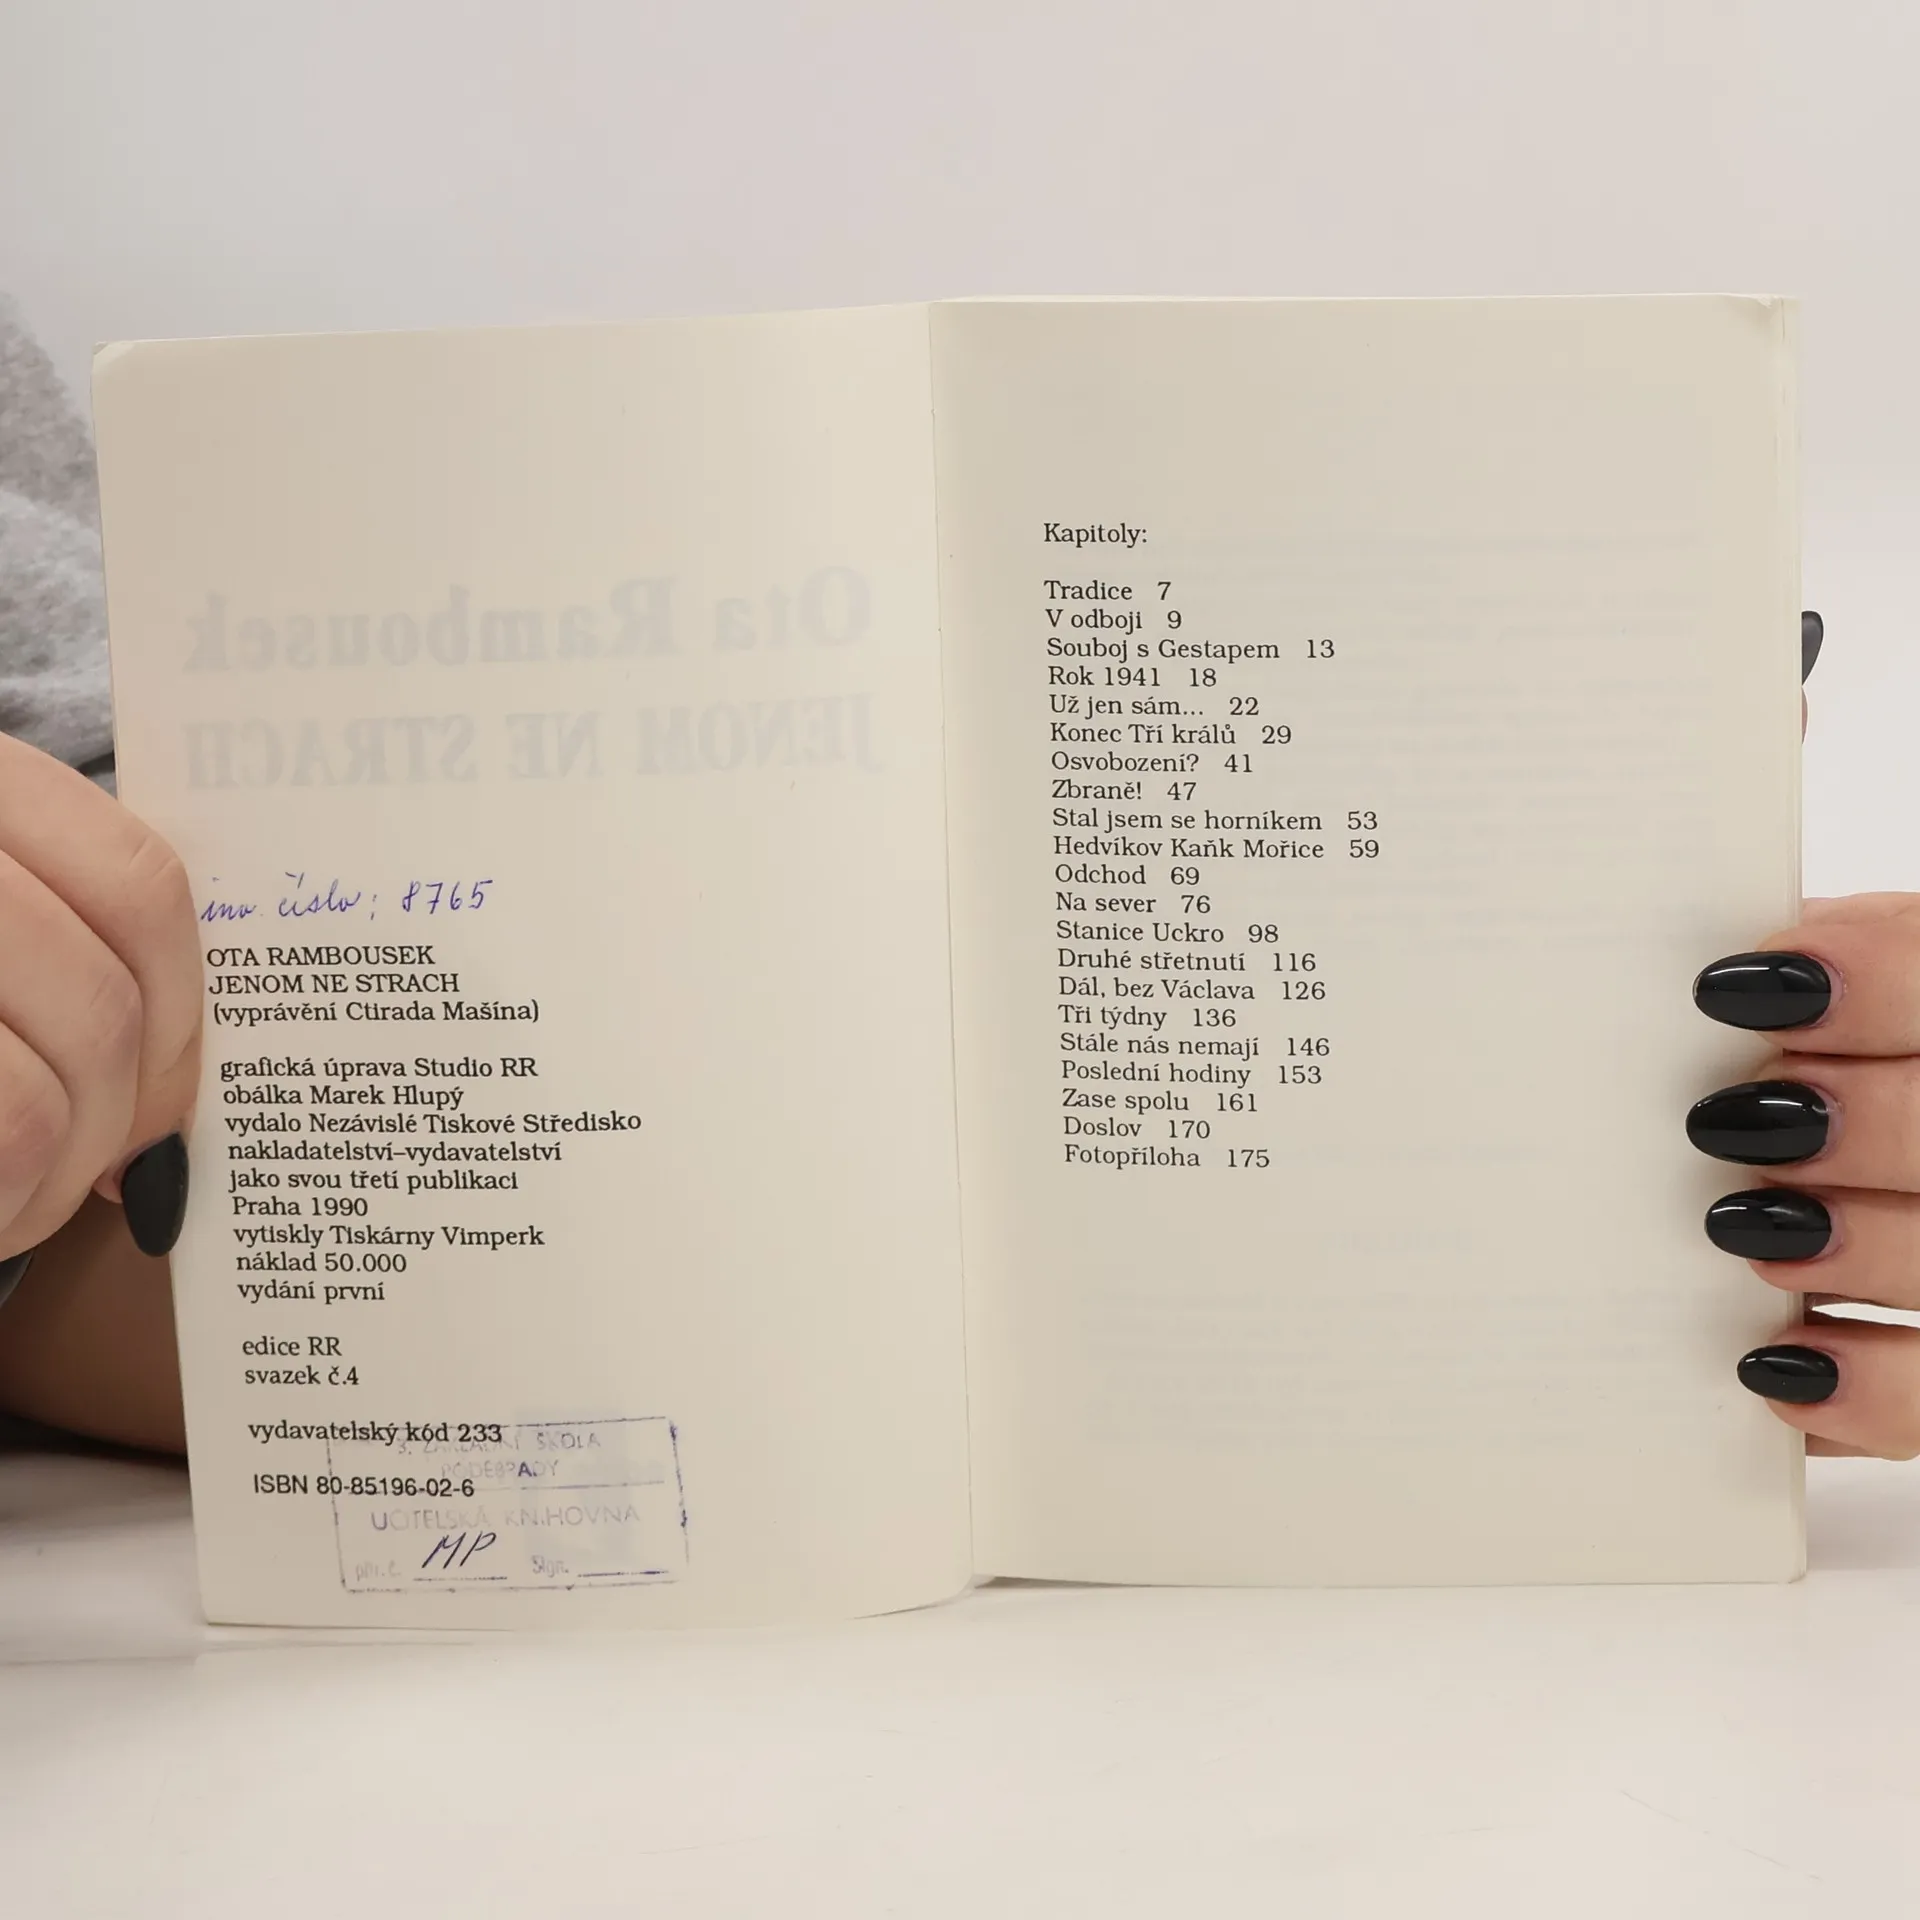 Ota Rambousek
JENOM NE STRACH
inv. číslo: 8765
OTA RAMBOUSEK
JENOM NE STRACH
(vyprávění Ctirada Mašína)
grafická úprava Studio RR
obálka Marek Hlupý
vydalo Nezávislé Tiskové Středisko
nakladatelství–vydavatelství
jako svou třetí publikaci
Praha 1990
vytiskly Tiskárny Vimperk
náklad 50.000
vydání první
edice RR
svazek č.4
vydavatelský kód 233
3. ZÁKLADNÍ ŠKOLA
PODĚBRADY
ISBN 80-85196-02-6
UČITELSKÁ KNIHOVNA
přír.č. MP Sign.
Kapitoly:
Tradice 7
V odboji 9
Souboj s Gestapem 13
Rok 1941 18
Už jen sám... 22
Konec Tří králů 29
Osvobození? 41
Zbraně! 47
Stal jsem se horníkem 53
Hedvíkov Kaňk Mořice 59
Odchod 69
Na sever 76
Stanice Uckro 98
Druhé střetnutí 116
Dál, bez Václava 126
Tři týdny 136
Stále nás nemají 146
Poslední hodiny 153
Zase spolu 161
Doslov 170
Fotopříloha 175